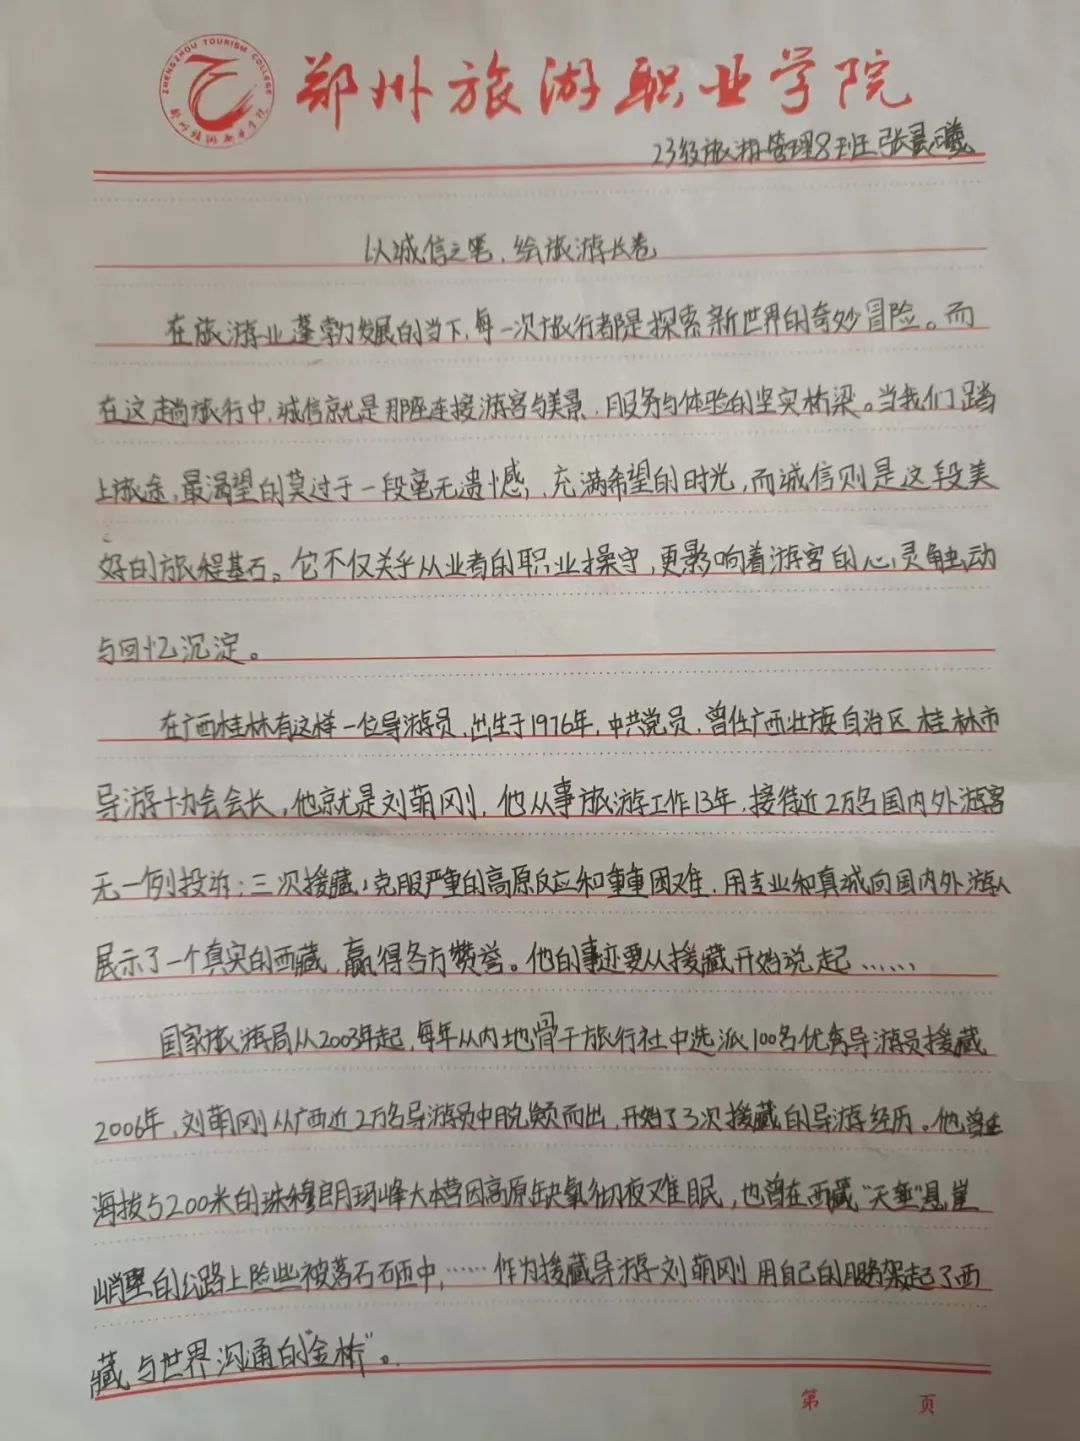 ZHENGZHOU TOURISM COLLEGE
郑州旅游职业学院
郑州旅游职业学院
23级旅游管理8班 张晨曦
以诚信之笔，绘旅游长卷
在旅游业蓬勃发展的当下，每一次旅行都是探索新世界的奇妙冒险。而
在这趟旅行中，诚信就是那座连接游客与美景、服务与体验的坚实桥梁。当我们踏
上旅途，最渴望的莫过于一段毫无遗憾，充满希望的时光，而诚信则是这段美
好的旅程基石。它不仅关乎从业者的职业操守，更影响着游客的心灵触动
与回忆沉淀。
在广西桂林有这样一位导游员，出生于1976年，中共党员，曾任广西壮族自治区桂林市
导游协会会长，他就是刘萌刚，他从事旅游工作13年，接待近2万名国内外游客
无一例投诉；三次援藏，克服严重的高原反应和重重困难，用专业和真诚向国内外游人
展示了一个真实的西藏，赢得各方赞誉。他的事迹要从援藏开始说起……
国家旅游局从2003年起，每年从内地骨干旅行社中选派100名优秀导游员援藏
2006年，刘萌刚从广西近2万名导游员中脱颖而出，开始了3次援藏的导游经历。他曾在
海拔5200米的珠穆朗玛峰大本营因高原缺氧彻夜难眠，也曾在西藏“天埀”悬崖
峭壁的公路上险些被落石砸中，……作为援藏导游刘萌刚用自己的服务架起了西
藏与世界沟通的“金桥”。
第 页